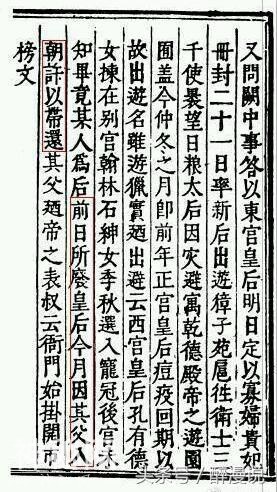 又問闕中事答以東宫皇后明日定以寡婦貴妃
冊封二十一日率新后出遊獐子苑扈徃衛士三
千使晷望日粮太后因灾避寓乾德殿帝之遊園
囿盖今仲冬之月即前年正宫皇后痘疫囬期以
故出遊名雖遊獵實廻出避云西宫皇后孔有德
女揀在别宫翰林石紳女季秋選入寵冠後宫未
知畢竟某人為后前日所廢皇后今月因其父入
朝許以帶還其父廼帝之表叔云衙門始掛開市
榜文
头条号/醉漫说